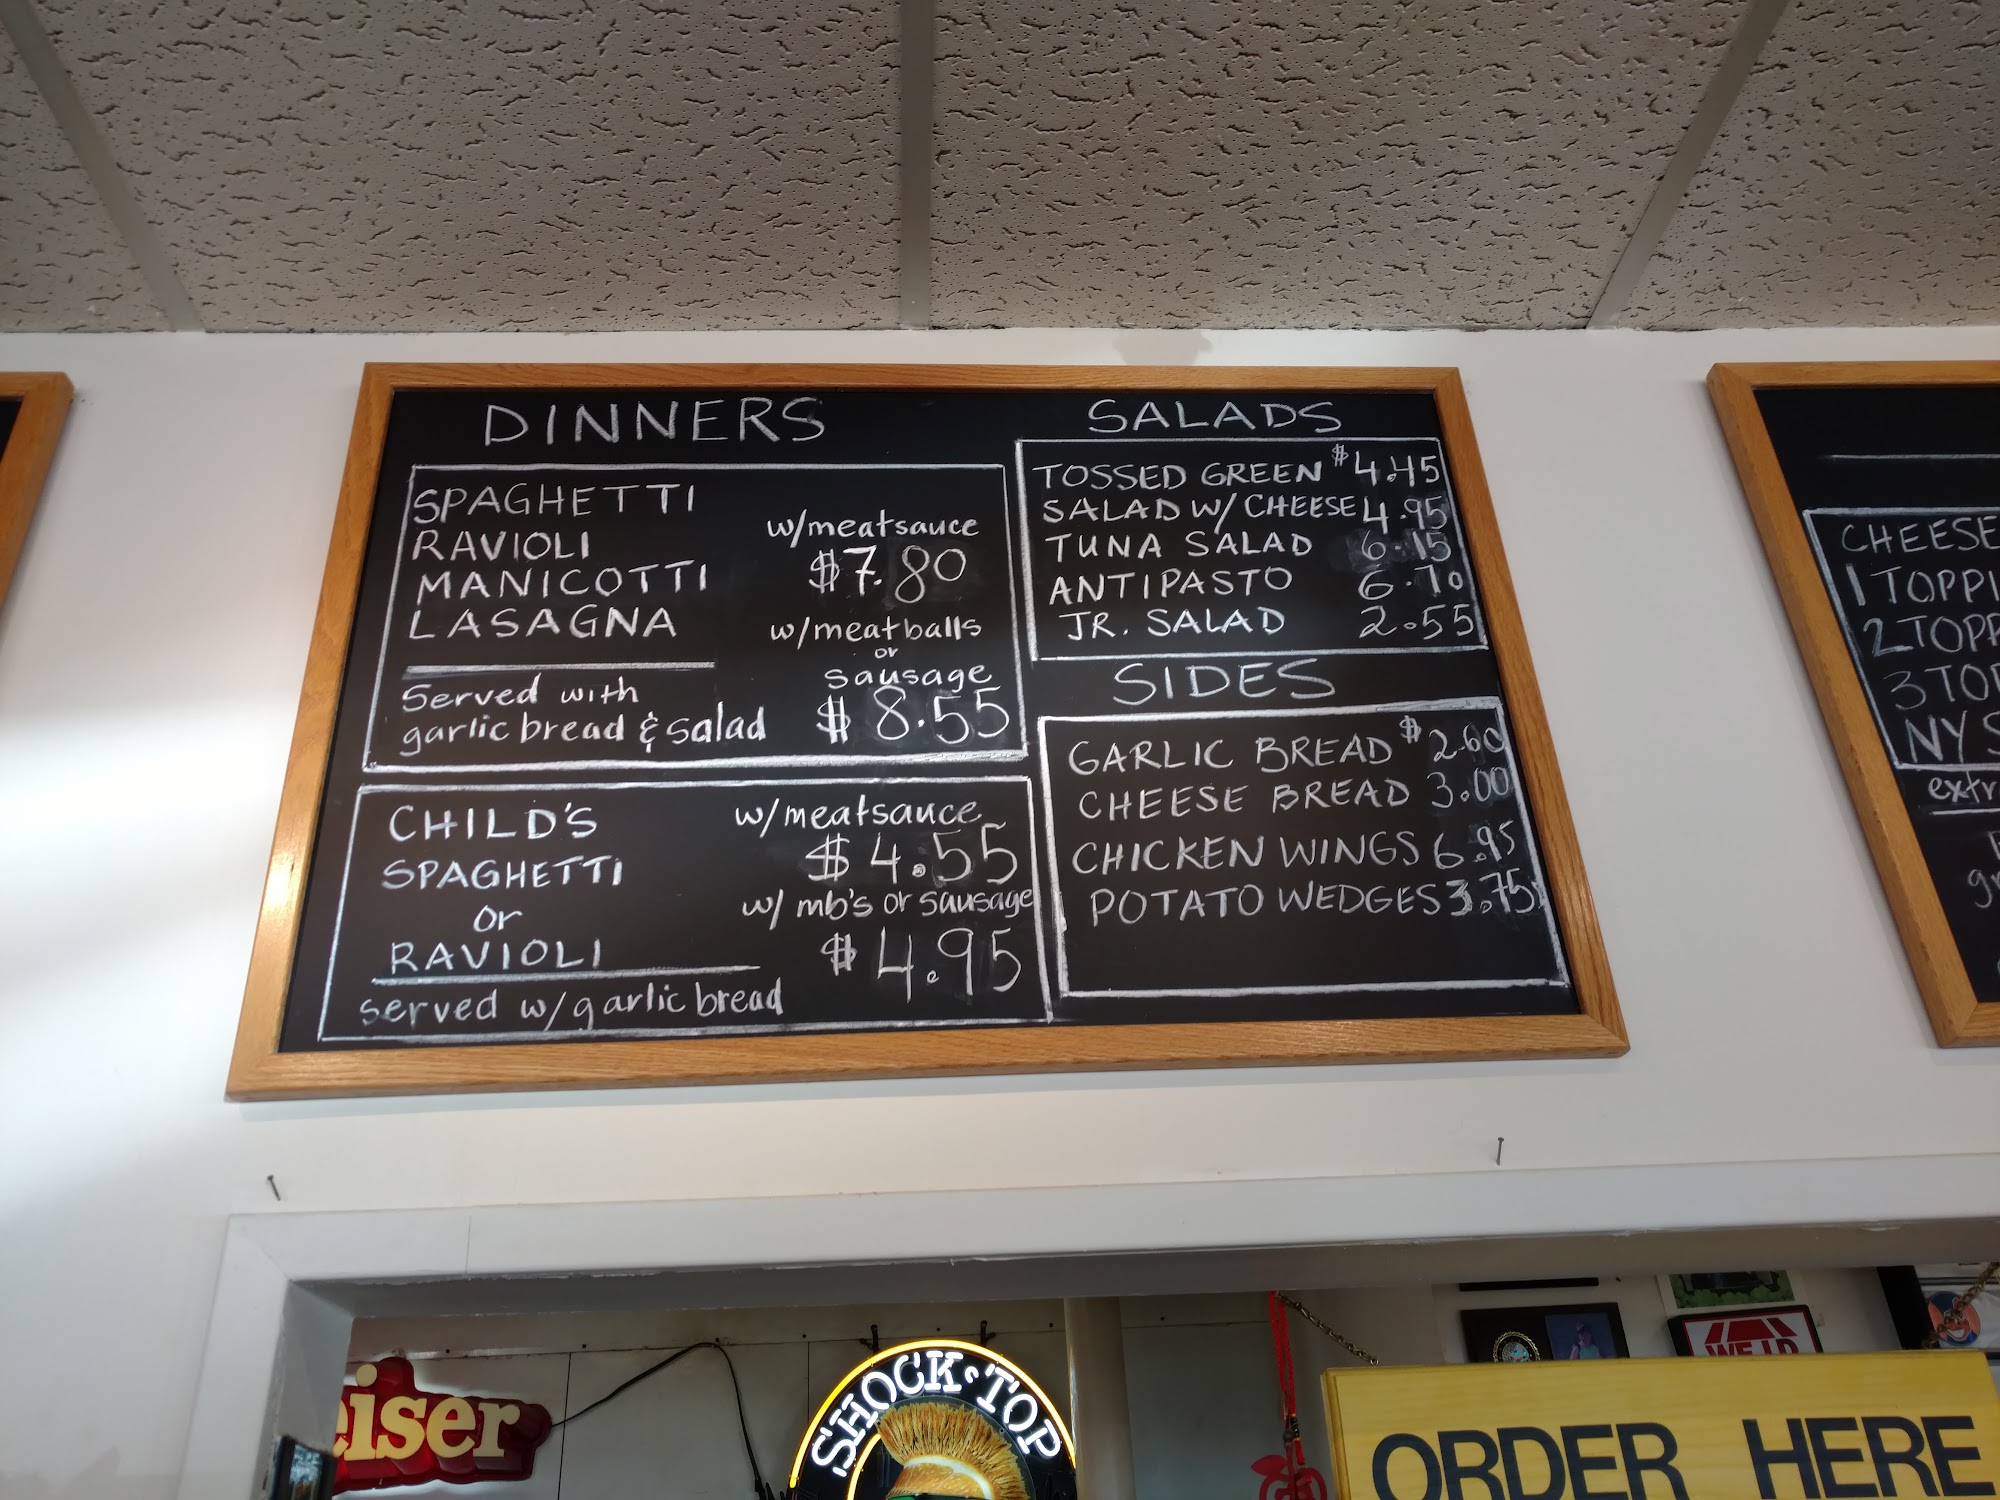 DINNERS
SPAGHETTI
RAVIOLI
MANICOTTI
LASAGNA
w/meatsauce
$7.80
w/meatballs
or
sausage
$8.55
Served with
garlic bread & salad
CHILD'S
SPAGHETTI
or
RAVIOLI
served w/garlic bread
w/meatsauce
$4.55
w/ mb's or sausage
$4.95
SALADS
TOSSED GREEN $4.45
SALAD W/ CHEESE 4.95
TUNA SALAD 6.15
ANTIPASTO 6.70
JR. SALAD 2.55
SIDES
GARLIC BREAD $2.60
CHEESE BREAD 3.00
CHICKEN WINGS 6.95
POTATO WEDGES 3.75
CHEESE
1 TOPPI
2 TOPP
3 TO
NY S
extr
eiser
SHOCK TOP
ORDER HERE